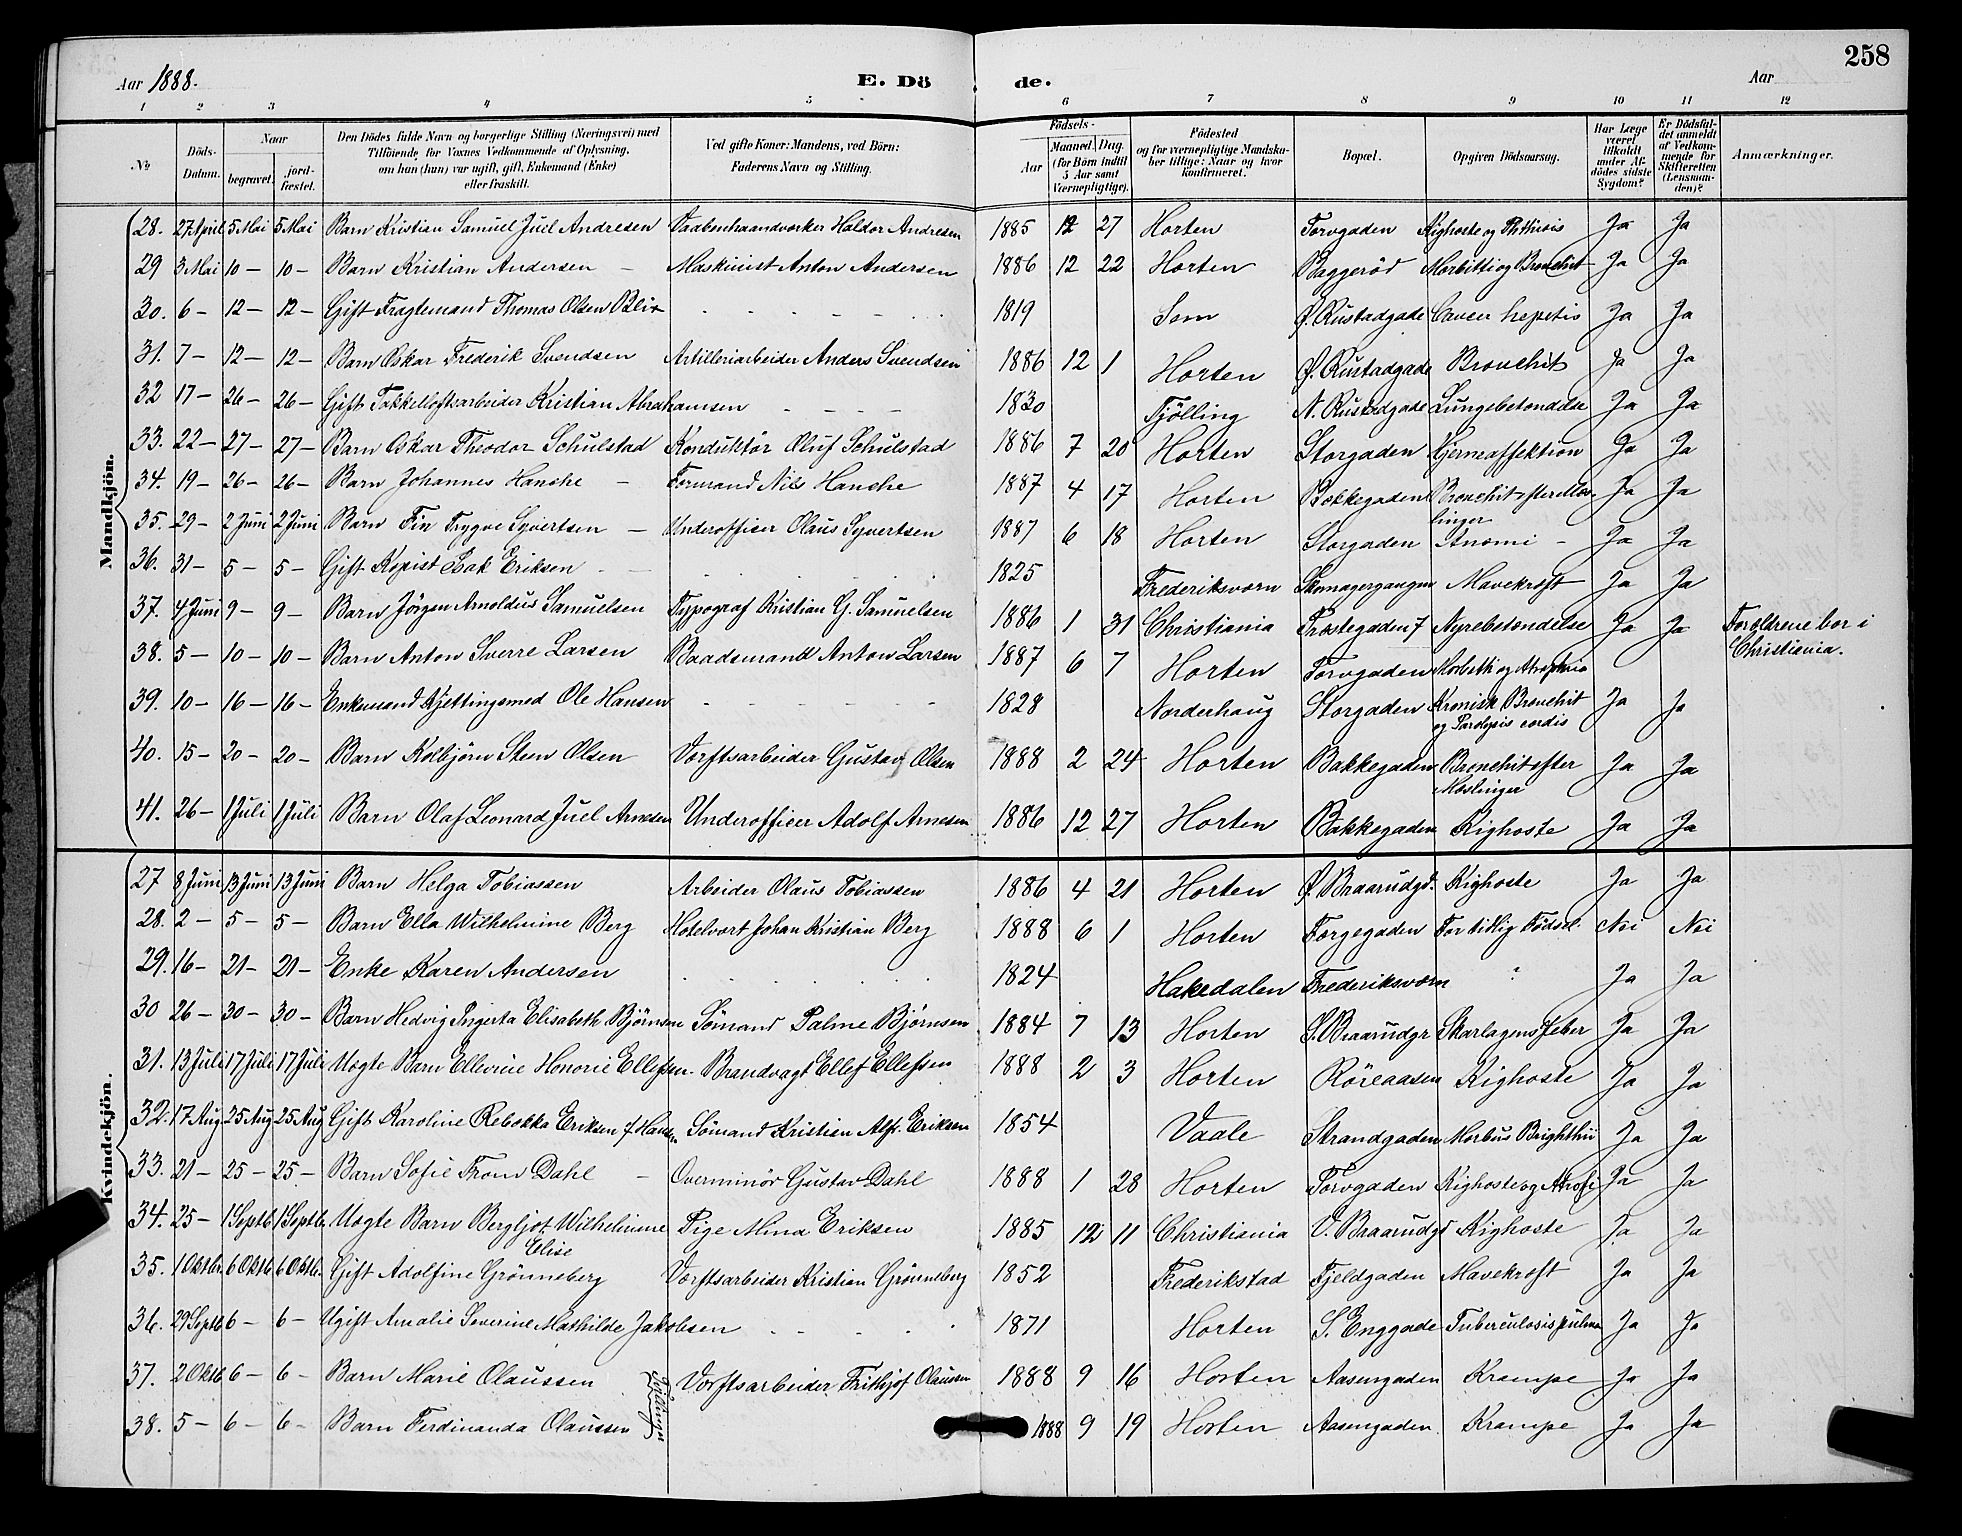 258
Aar 1888. E. Dö de. Aar
1 2 3 4 5 6 7 8 9 10 11 12
No
Döds-Datum.
Naar
begravet.
jord-fæstet.
Den Dödes fulde Navn og borgerlige Stilling (Næringsvei) med
Tilföiende for Voxnes Vedkommende af Oplysning,
om han (hun) var ugift, gift, Enkemand (Enke)
eller fraskilt.
Ved gifte Koner: Mandens, ved Börn:
Faderens Navn og Stilling.
Födsels-
Aar
Maaned. Dag.
(for Börn indtil
5 Aar samt
Værnepligtige).
Födested
og for værnepligtige Mandska-
ber tillige: Naar og hvor
konfirmeret.
Bopæl.
Opgiven Dödsaarsag.
Har Læge
været
tilkaldt
under Af-
dödes sidste
Sygdom?
Er Dödsfal-
det anmeldt
af Vedkom-
mende for
Skifteretten
(Lensman-
den)?
Anmærkninger.
Mandkjön.
28. 27 April 5 Mai 5 Mai Barn Kristian Samuel Juel Andresen Vaabenhaandværker Haldor Andresen 1885 12 27 Horten Torvgaden Kighoste og Phthisis Ja Ja
29 3 Mai 10 – 10 – Barn Kristian Andersen – Maskinist Anton Andersen 1886 12 22 Horten Baggeröd Morbilli og Bronchit Ja Ja
30. 6 – 12 – 12 – Gift Fragtemand Thomas Olsen Blix 1819 Sem Ø. Rustadgade Cancer hepetis Ja Ja
31. 7 – 12 – 12 – Barn Oskar Frederik Svendsen Artilleriarbeider Anders Svendsen 1886 12 1 Horten Ø. Rustadgade Bronchit Ja Ja
32 17 – 26 – 26 – Gift Takkelloftsarbeider Kristian Abrahamsen 1830 Tjölling N. Rustadgade Lungebetændelse Ja Ja
33. 22 – 27 – 27 – Barn Oskar Theodor Schulstad Konduktör Oluf Schulstad 1886 7 20 Horten Storgaden Hjerneaffektion Ja Ja
34. 19 – 26 – 26 – Barn Johannes Hanche – Formand Nils Hanche 1887 4 17 Horten Bakkegaden Bronchit efter Mæs-
linger Ja Ja
35. 29 – 2 Juni 2 Juni Barn Fin Trygve Syvertsen – Underofficer Olaus Syvertsen 1887 6 18 Horten Storgaden Anæmi – Ja Ja
36. 31 – 5 – 5 – Gift Kopist Isak Eriksen 1825 Frederiksværn Skomagergangen Mavekræft Ja Ja
37. 4 Juni 9 – 9 – Barn Jörgen Arnoldus Samuelsen Typograf Kristian G. Samuelsen 1886 1 31 Christiania Præstegaden 7 Nyrebetændelse Ja Ja Forældrene bor i
Christiania.
38. 5 – 10 – 10 – Barn Anton Sverre Larsen Baadsmand Anton Larsen 1887 6 7 Horten Torvgaden Morbilli og Atrophia
39. 10 – 16 – 16 – Enkemand Kjettingsmed Ole Hansen 1828 Norderhaug Storgaden Kronisk Bronchit
og Paralysis cordis Ja Ja
40. 15 – 20 – 20 – Barn Kolbjörn Steen Olsen Værftsarbeider Gustav Olsen 1888 2 24 Horten Bakkegaden Bronchit efter
Mæslinger Ja Ja
41. 26 – 1 Juli 1 Juli Barn Olaf Leonard Juel Arnesen Underofficer Adolf Arnesen 1886 12 27 Horten Bakkegaden Kighoste Ja Ja
Kvindekjön.
27 8 Juni 13 Juni 13 Juni Barn Helga Tobiassen Arbeider Olaus Tobiassen 1886 4 21 Horten Ø. Braarudgd. Kighoste Ja Ja
28. 2 – 5 – 5 – Barn Ella Wilhelmine Berg Hotelvært Johan Kristian Berg 1888 6 1 Horten Torgegaden For tidlig Födsel. Nei Nei
29. 16 – 21 – 21 – Enke Karen Andersen 1824 Hakedalen Frederiksværn ? Ja Ja
30 26 – 30 – 30 – Barn Hedvig Ingerta Elisabeth Björnsen Sömand Palme Björnsen 1884 7 13 Horten S. Braarudgr Skarlagensfeber Ja Ja
31. 13 Juli 17 Juli 17 Juli Uægte Barn Ellevine Honorie Ellefsen. Brandvagt Ellef Ellefsen 1888 2 3 Horten Röreaasen Kighoste Ja Ja
32. 17 Aug 25 Aug 25 Aug Gift Karoline Rebekka Eriksen f. Hansen Sömand Kristian Alfr. Eriksen 1854 Vaale Strandgaden Morbus Brighthii Ja Ja
33. 21 – 25 – 25 – Barn Sofie Trom Dahl – Overminör Gustav Dahl 1888 1 28 Horten Torvgaden Kighoste og Ja Ja
34. 25 – 1 Septb. 1 Septb. Uægte Barn Bergljot Wilhelmine
Elise Pige Mina Eriksen 1885 12 11 Christiania V. Braarudgd Kighoste Ja Ja
35. 1 Oktbr. 6 Oktb. 6 Oktb. Gift Adolfine Grönneberg Værftsarbeider Kristian Grönneberg 1852 Frederikstad Fjeldgaden Mavekræft Ja Ja
36. 29 Septb. 6 – 6 – Ugift Amalie Severine Mathilde Jakobsen 1871 Horten S. Enggade Tuberculosis pulm Ja Ja
37. 2 Oktb. 6 – 6 – Barn Marie Olaussen Tvillinger Værftsarbeider Frithjof Olaussen 1888 9 16 Horten Aasengaden Krampe Ja Ja
38. 5 – 6 – 6 – Barn Ferdinanda Olaussen 1888 9 19 Horten Aasengaden. Krampe Ja Ja